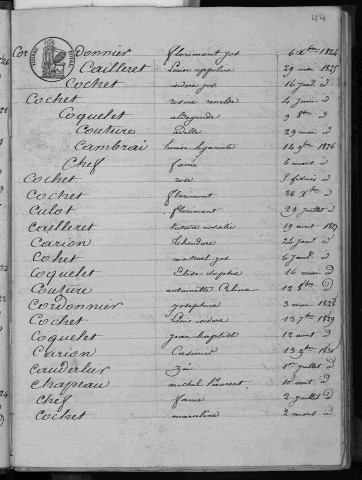 44
Cordonnier florimont jos 6 Xbre 1824
Cailleret Louise appoline 29 mai 1825
Cochet isidore jos 16 Juil d
Cochet rosine renelde 4 Juin d
Coquelet aldegonde 9 8bre d
Couture adelle 29 mai d
Cambrai louise hyacinthe 14 9bre 1826
Chef fanie 6 mars d
Cochet d
Cochet florimont 28 Xbre d
Culot florimont 29 Juillet d
Cailleret rosalie 19 avril 1827
Carion théodore d
Cohet manuel jos d
Coquelet Elise Sophie 16 mai d
Couture antoinette 12 8bre d
Cordonnier josephine 3 mai 1828
Cochet Louis isidore 13 7bre 1829
Coquelet jean baptiste 12 aout d
Carion Casimir 13 9bre
Cauderlier Zoé 1er Juillet d
Chapeau michel Laurent 10 aout d
Chef fanie 2 juillet d
Cochet marceline 2 mars d